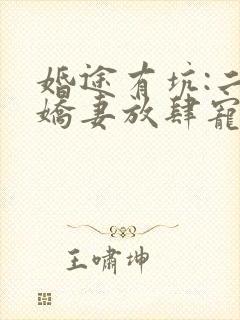 婚途有坑:二
嬌妻放肆寵
王嘯坤